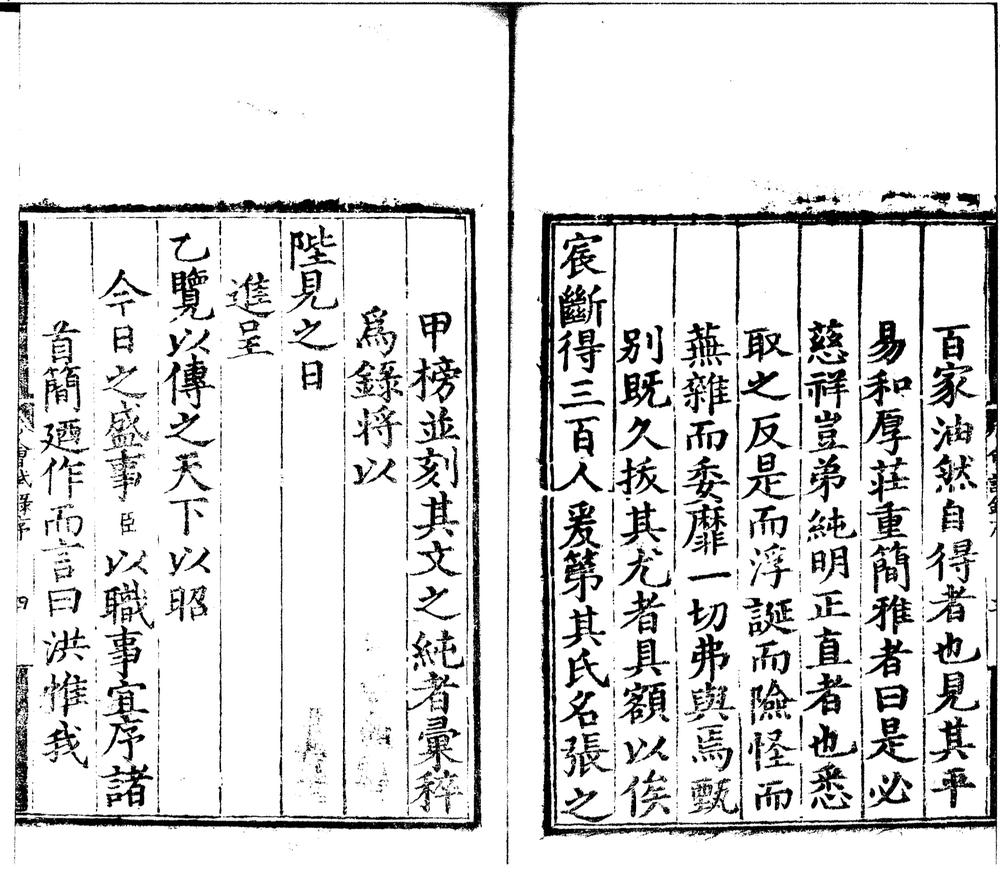 百家油然自得者也見其平
易和厚莊重簡雅者曰是必
慈祥豈弟純明正直者也悉
取之反是而浮誕而險怪而
蕪雜而委靡一切弗與焉甄
别既久拔其尤者具額以俟
宸斷得三百人爰第其氏名張之
甲榜並刻其文之純者彙稡
爲錄將以
陛見之日
進呈
乙覽以傳之天下以昭
今日之盛事臣以職事宜序諸
首簡廼作而言曰洪惟我
會試錄序
四